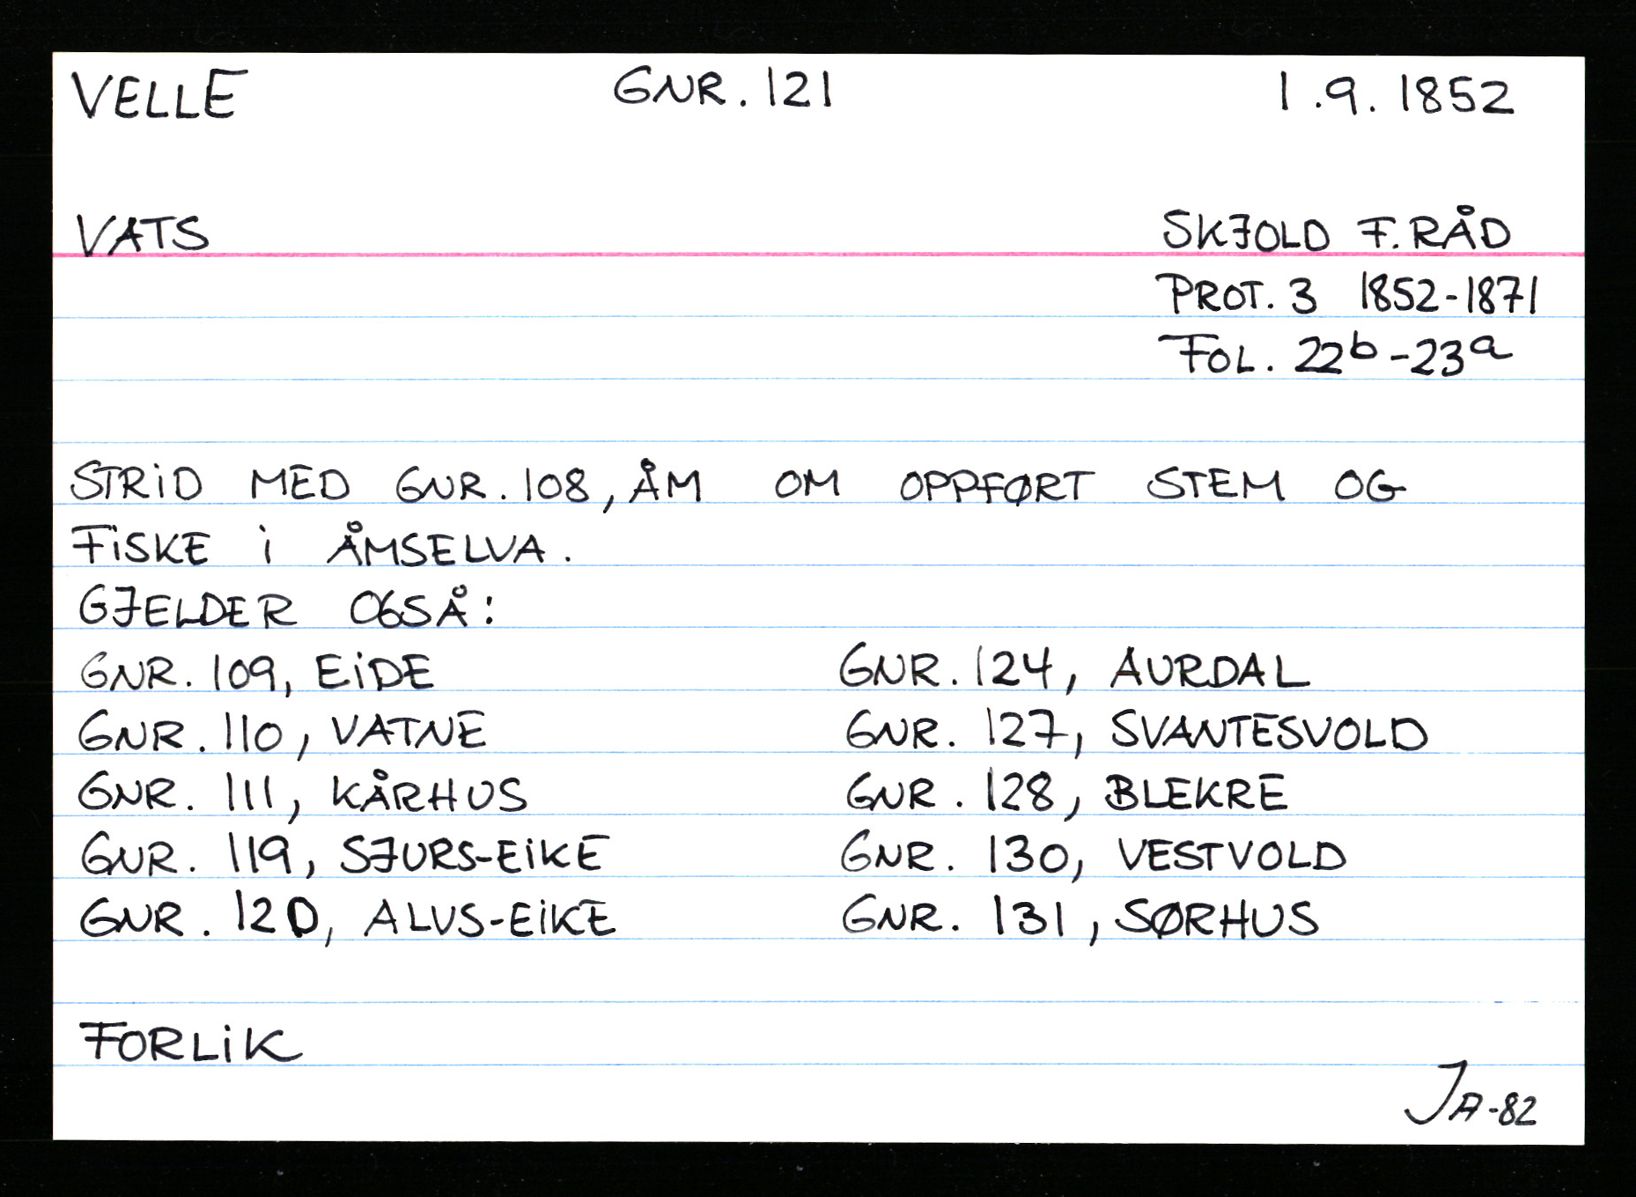 VELLE GNR. 121 1.9.1852
VATS SKJOLD F.RÅD
PROT. 3 1852-1871
FOL. 22b-23a
STRID MED GNR. 108, ÅM OM OPPFØRT STEM OG
FISKE I ÅMSELVA.
GJELDER OGSÅ:
GNR. 109, EIDE GNR. 124, AURDAL
GNR. 110, VATNE GNR. 127, SVANTESVOLD
GNR. 111, KÅRHUS GNR. 128, BLEKRE
GNR. 119, SJURS-EIKE GNR. 130, VESTVOLD
GNR. 120, ALVS-EIKE GNR. 131, SØRHUS
FORLIK
JA-82